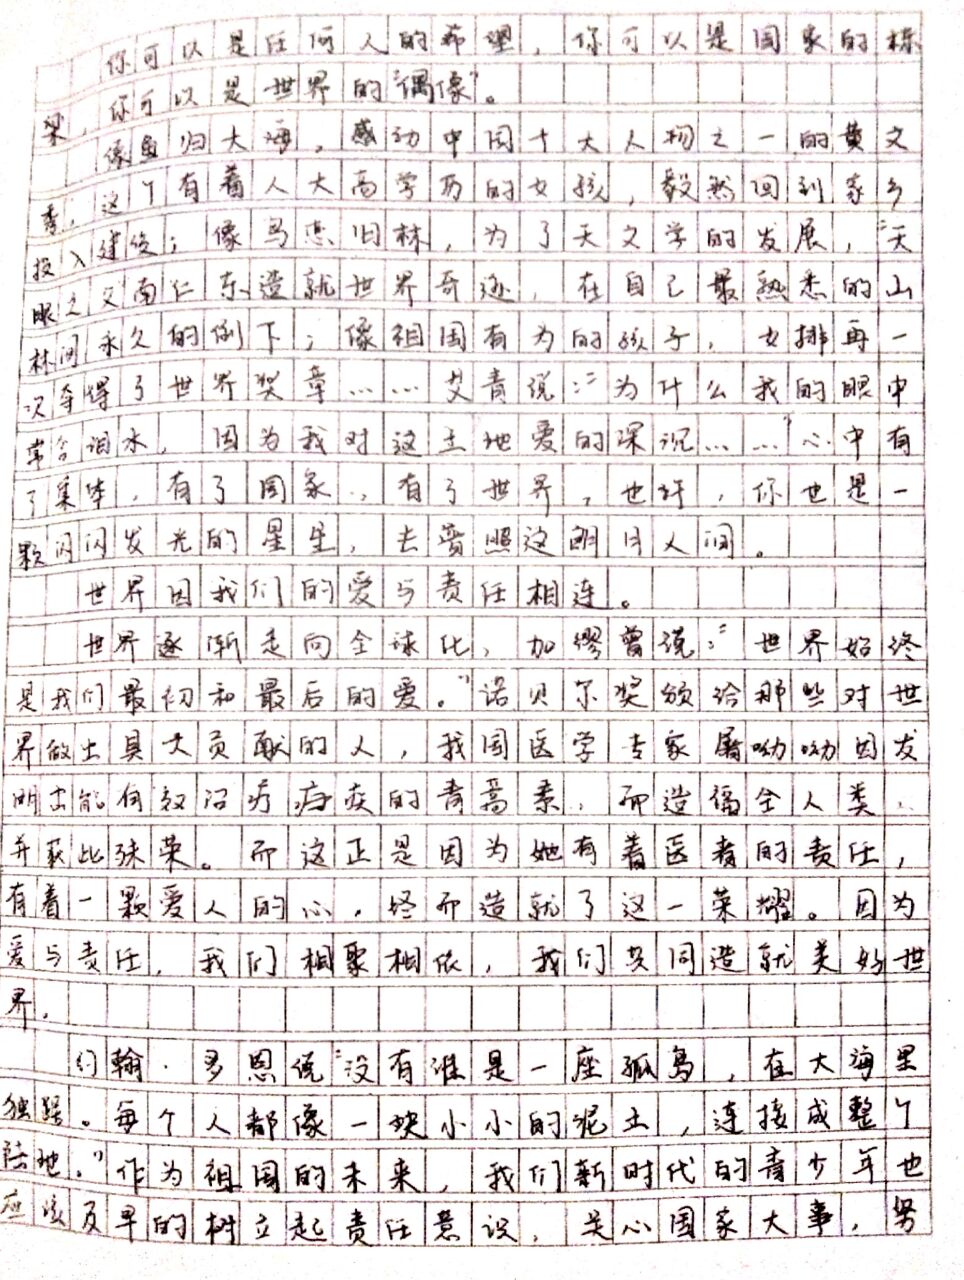 你可以是任何人的希望，你可以是国家的栋
梁，你可以是世界的“偶像”。
像鱼归大海，感动中国十大人物之一的黄文
秀，这个有着人大高学历的女孩，毅然回到家乡
投入建设；像鸟恋旧林，为了天文学的发展，“天
眼之父南仁东造就世界奇迹，在自己最熟悉的山
林间永久的倒下；像祖国有为的孩子，女排再一
次夺得了世界奖章……艾青说：“为什么我的眼中
常含泪水，因为我对这土地爱的深沉……”心中有
了集体，有了国家，有了世界，也许，你也是一
颗闪闪发光的星星，去普照这朗月人间。
世界因我们的爱与责任相连。
世界逐渐走向全球化，加缪曾说：“世界始终
是我们最初和最后的爱。”诺贝尔奖颁给那些对世
界做出具大贡献的人，我国医学专家屠呦呦因发
明出能有效治疗疟疾的青蒿素，而造福全人类，
并获此殊荣。而这正是因为她有着医者的责任，
有着一颗爱人的心，终而造就了这一荣耀。因为
爱与责任，我们相聚相依，我们共同造就美好世
界，
约翰·多恩说“没有谁是一座孤岛，在大海里
独踞。每个人都像一块小小的泥土，连接成整个
陆地，”作为祖国的未来，我们新时代的青少年也
应该及早的树立起责任意识，关心国家大事，努